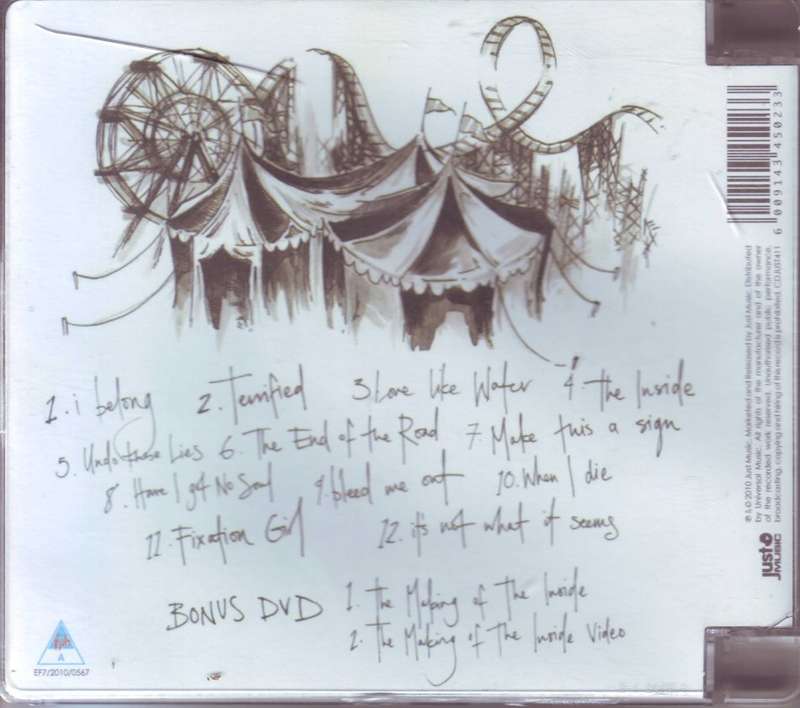 1. i belong 2. Terrified 3 Love like Water 4 The Inside
5. Undo these Lies 6. The End of the Road 7. Make this a sign
8. Have I got No Soul 9. bleed me out 10. When I die
11. Fixation Girl 12. it's not what it seems
BONUS DVD 1. The Making of The Inside
2. The Making of The Inside Video
A
EF7/2010/0567
6 009143 450233
℗ & © 2010 Just Music. Marketed and Released by Just Music. Distributed
by Universal Music. All rights of the manufacturer and of the owner
of the recorded work reserved. Unauthorised public performance,
broadcasting, copying and hiring of this record is prohibited. CDJUST411
just
MUSIC